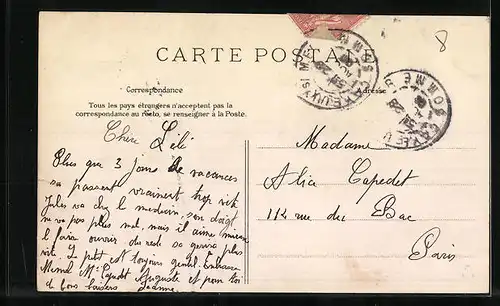 8
CARTE POSTALE
Correspondance
Adresse
Tous les pays étrangers n'acceptent pas la
correspondance au recto, se renseigner à la Poste.
Chère Lili
Plus que 3 jours de vacances
sa passent vraiment trop vite
Jules va chez le medecin, son doigt
ne va pas plus mal, mais il aime mieux
le faire ouvrir du reste sa guerira plus
vite. Y petit toujours gentil. Embrasse
Auguste et pour toi
de bons baisers Jeanne
Madame
Alia Capedet
112 rue du Bac
Paris
CAYEUX
SOMME